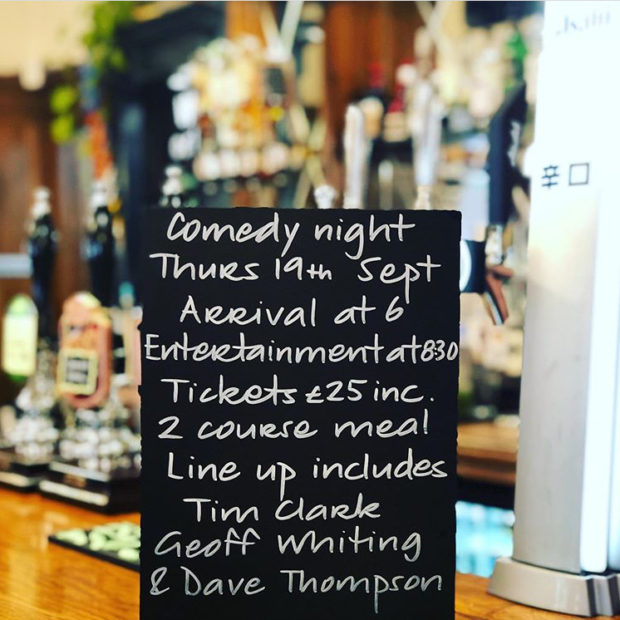 Asahi
辛口
Comedy night
Thurs 19th Sept
Arrival at 6
Entertainment at 8:30
Tickets £25 inc.
2 course meal
Line up includes
Tim Clark
Geoff Whiting
& Dave Thompson